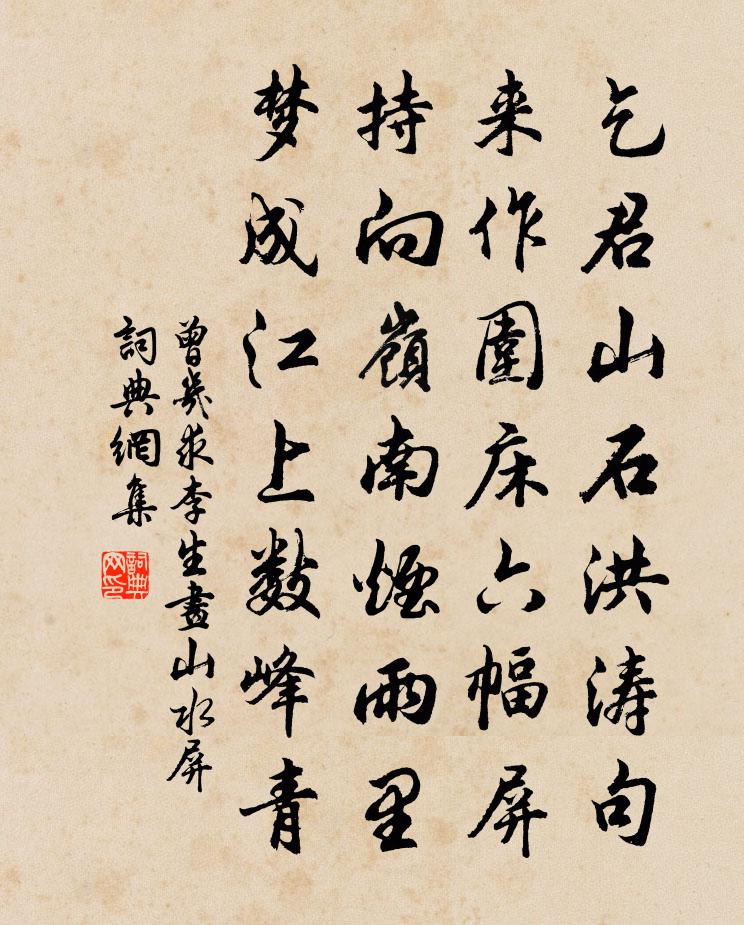 乞君山石洪涛句
来作圍床六幅屏
持向嶺南煙雨里
梦成江上数峰青
曾幾求李生畫山水屏
詞典網集
詞典网印